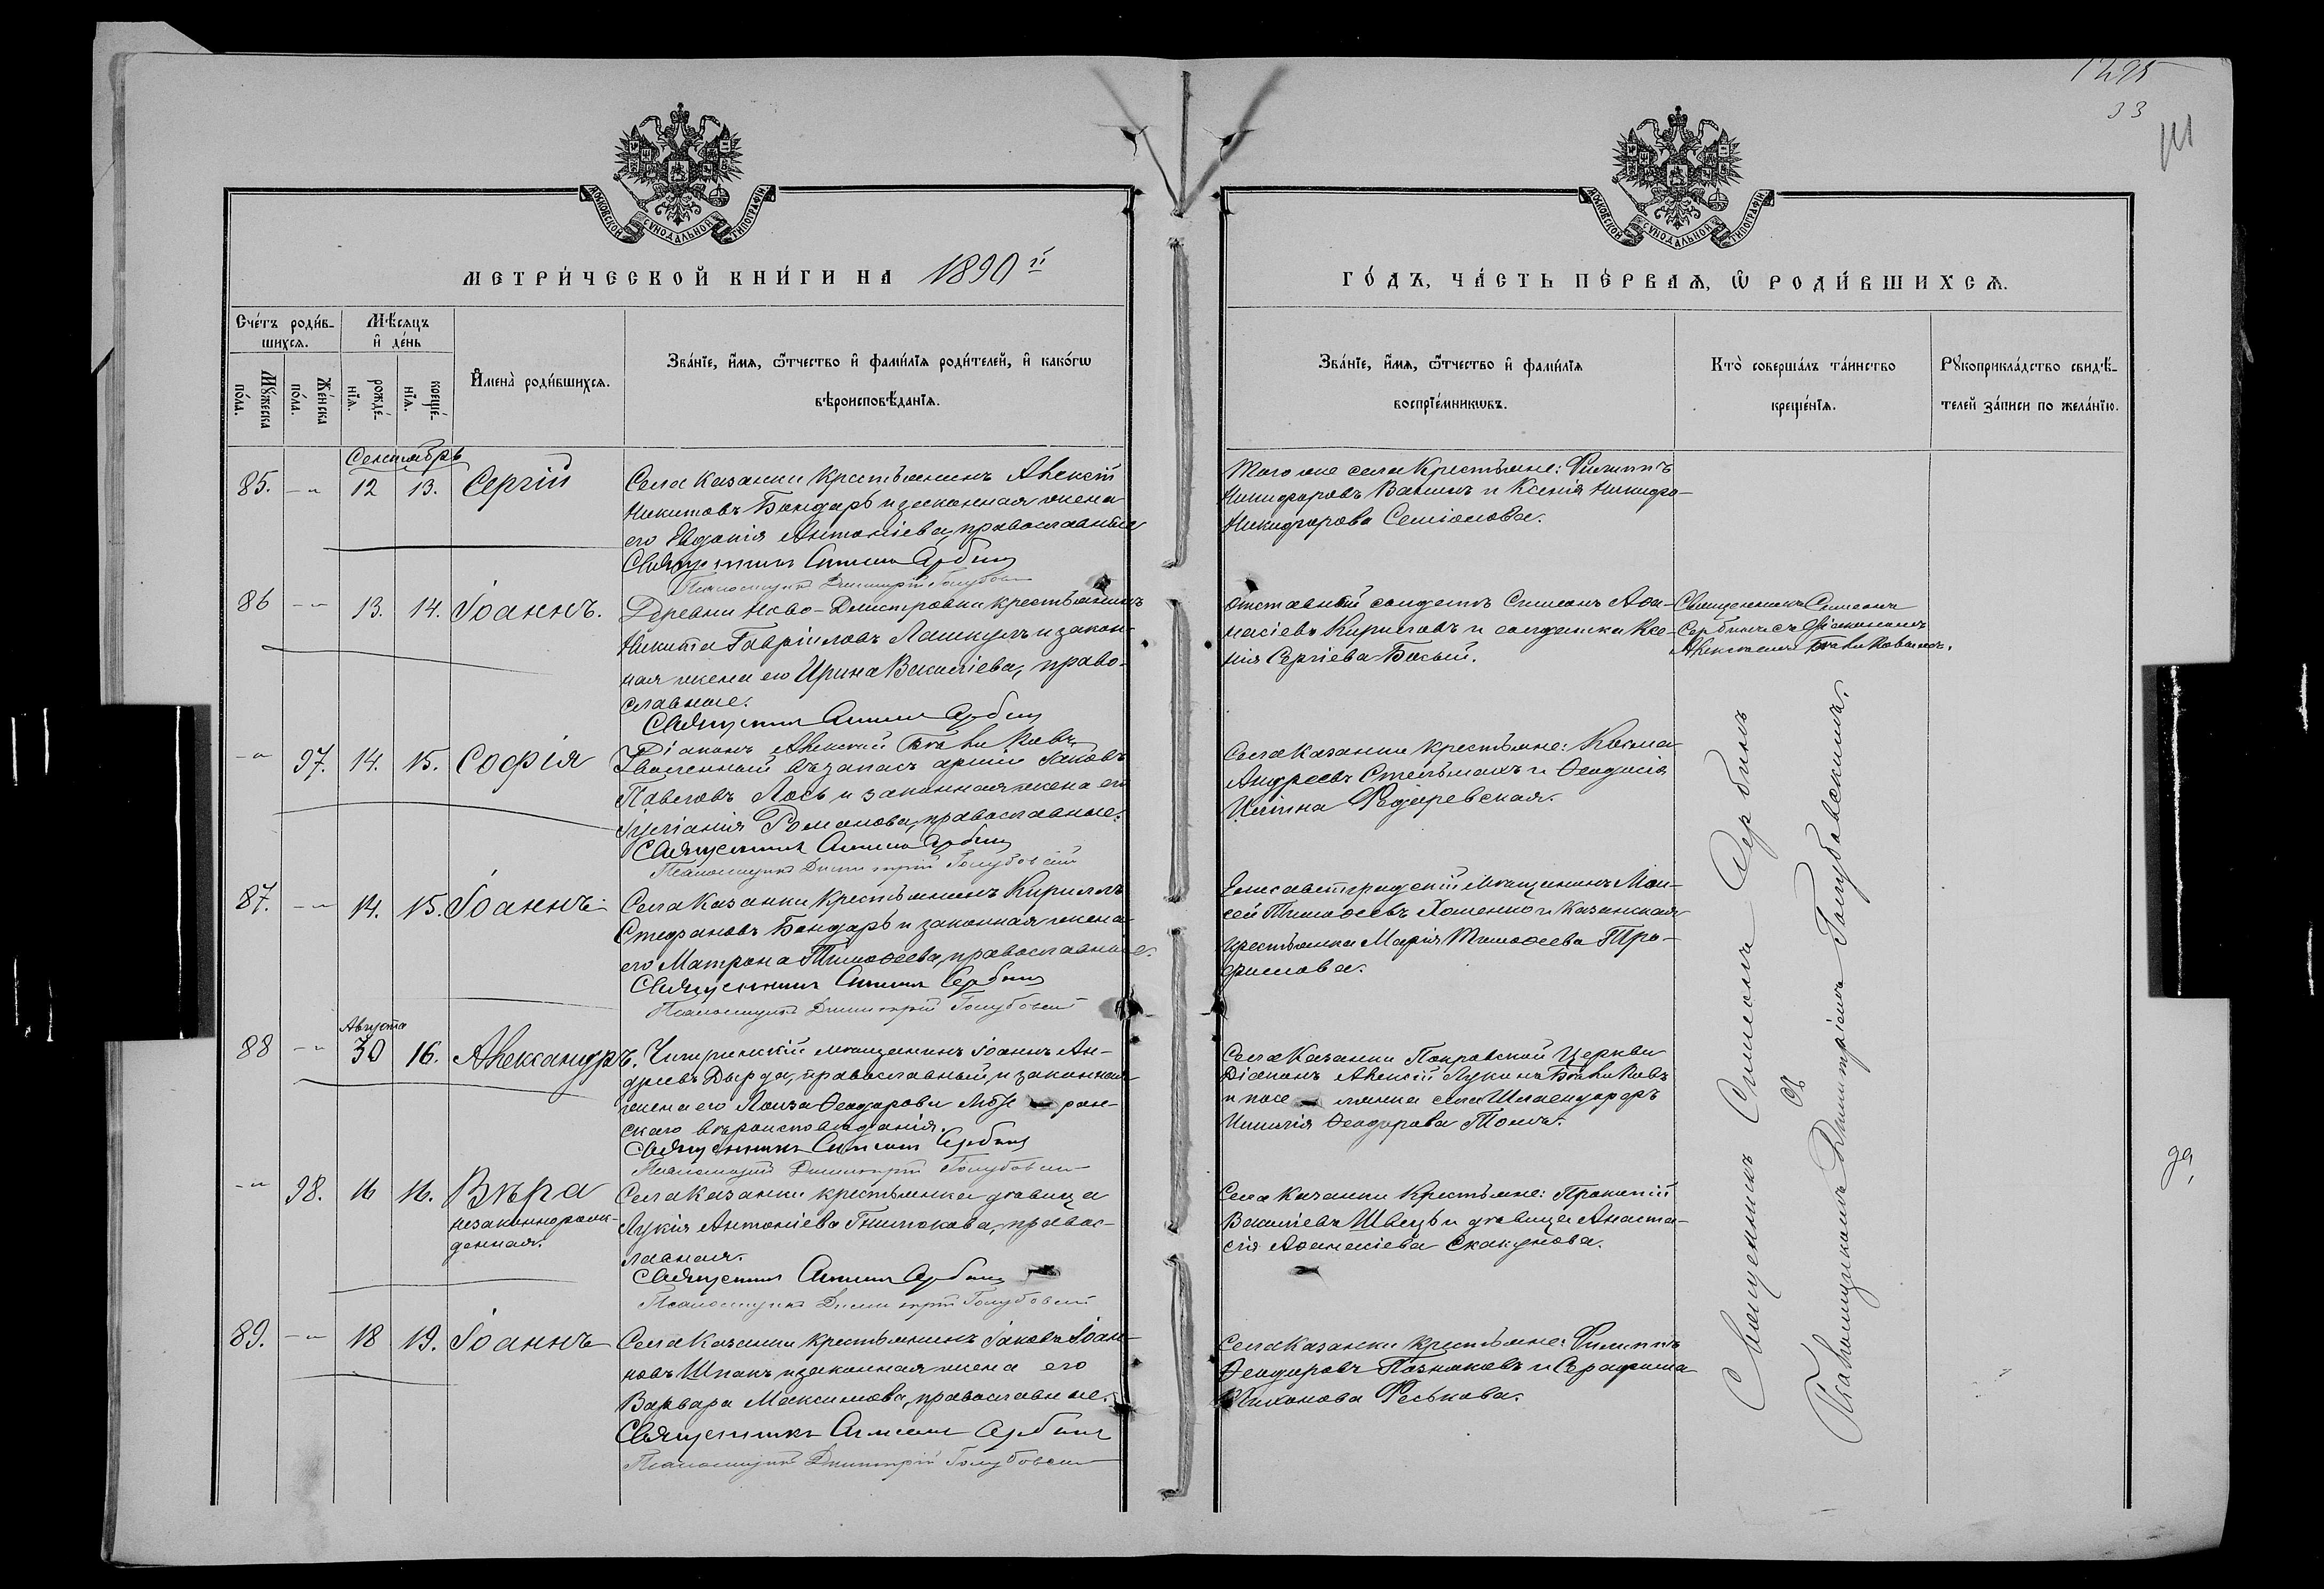 1295
33
МОСКОВСКОЙ СѴНОДАЛЬНОЙ ТИПОГРАФІИ
МЕТРИ́ЧЕСКОЙ КНИ́ГИ НА 1890 й
Сче́тъ роди́в-
шихсѧ.
Мѹ́жеска
по́ла.
Же́нска
по́ла.
Мѣ́сѧцъ
и҆ де́нь
рожде́-
нїѧ.
креще́-
нїѧ.
И҆мена̀ роди́вшихсѧ.
Зва́нїе, и҆́мѧ, ѻ҆́тчество и҆ фами́лїѧ роди́телей, и҆ како́гѡ
вѣроисповѣ́данїѧ.
Сентябрь
85. -"- 12 13. Сергій
Села Казанки крестьянинъ Алексій
Никитовъ Бондарь и законная жена
его Евдокія Антоніева, православные
Священникъ Симеонъ Сербинъ
Псаломщикъ Димитрій Голубовскій
86 -"- 13. 14. Іоаннъ.
Деревни Ново-Дмитровки крестьянинъ
Никита Гавріиловъ Лашкулъ и закон-
ная жена его Ирина Василіева, право-
славные.
Священникъ Симеонъ Сербинъ
Діаконъ Алексій
-"- 97. 14. 15. Софія
Уволенный въ запасъ арміи Іаковъ
Павловъ Лось и законная жена его
Іуліанія Романова, православные.
Священникъ Симеонъ Сербинъ
Псаломщикъ Димитрій Голубовскій
87. -"- 14. 15. Іоаннъ.
Села Казанки крестьянинъ Кириллъ
Стефановъ Бондарь и законная жена
его Матрона Тимоѳеева, православные.
Священникъ Симеонъ Сербинъ
Псаломщикъ Димитрій Голубовскій
Августа
88 -"- 30 16. Александръ.
Чигиринскій мѣщанинъ Іоаннъ Ан-
дреевъ Дырда, православный, и законная
жена его Луиза Ѳеодорова лютеран-
скаго вѣроисповѣданія.
Священникъ Симеонъ Сербинъ
Псаломщикъ Димитрій Голубовскій
-"- 98. 16 16. Вѣра
незаконнорож-
денная.
Села Казанки крестьянка дѣвица
Лукія Антоніева Гнилокова, правос-
лавная.
Священникъ Симеонъ Сербинъ
Псаломщикъ Димитрій Голубовскій
89. -"- 18 19. Іоаннъ
Села Казанки крестьянинъ Іаковъ Іоан-
новъ Шпакъ и законная жена его
Варвара Максимова, православные.
Священникъ Симеонъ Сербинъ
Псаломщикъ Димитрій Голубовскій
МОСКОВСКОЙ СѴНОДАЛЬНОЙ ТИПОГРАФІИ
ГО́ДЪ, ЧА́СТЬ ПЕ́РВАѦ, Ѡ҆ РОДИ́ВШИХСѦ.
Зва́нїе, и҆́мѧ, ѻ҆́тчество и҆ фами́лїѧ
воспрїе́мникѡвъ.
Кто̀ соверша́лъ та́инство
креще́нїѧ.
Рѹкоприкла́дство свидѣ́-
телей за́писи по жела́нїю.
Того же села крестьяне: Филиппъ
Никифоровъ и Ксенія Никифо-
Никифорова Семіонова.
Отставный солдатъ Симеонъ Аѳа-
насіевъ Кириловъ и солдатка Ксе-
нія Сергіева Босый.
Священникъ Симеонъ
Сербинъ съ діакономъ
Алексіемъ
Села Казанки крестьяне: Косма
Андреевъ Стельмахъ и Ѳеодосія
Иліина
Елисаветградскій мѣщанинъ Мои-
сей Тимоѳеевъ Хоменко и Казанская
крестьянка Марія Тимоѳеева Тро-
фимова.
Села Казанки Покровской Церкви
Діаконъ Алексій Лукинъ
и посе лянка села Шлаендорфъ
Ѳеодорова
Села Казанки крестьяне: Прокопій
Василіевъ Швецъ и дѣвица Анаста-
сія Аѳанасіева Скакунова.
Села Казанки крестьяне: Филиппъ
Ѳеодоровъ Позняковъ и Серафима
Тихонова Феськова.
Священникъ Симеонъ Сербинъ
съ
Псаломщикомъ Димитріемъ Голубовскимъ.